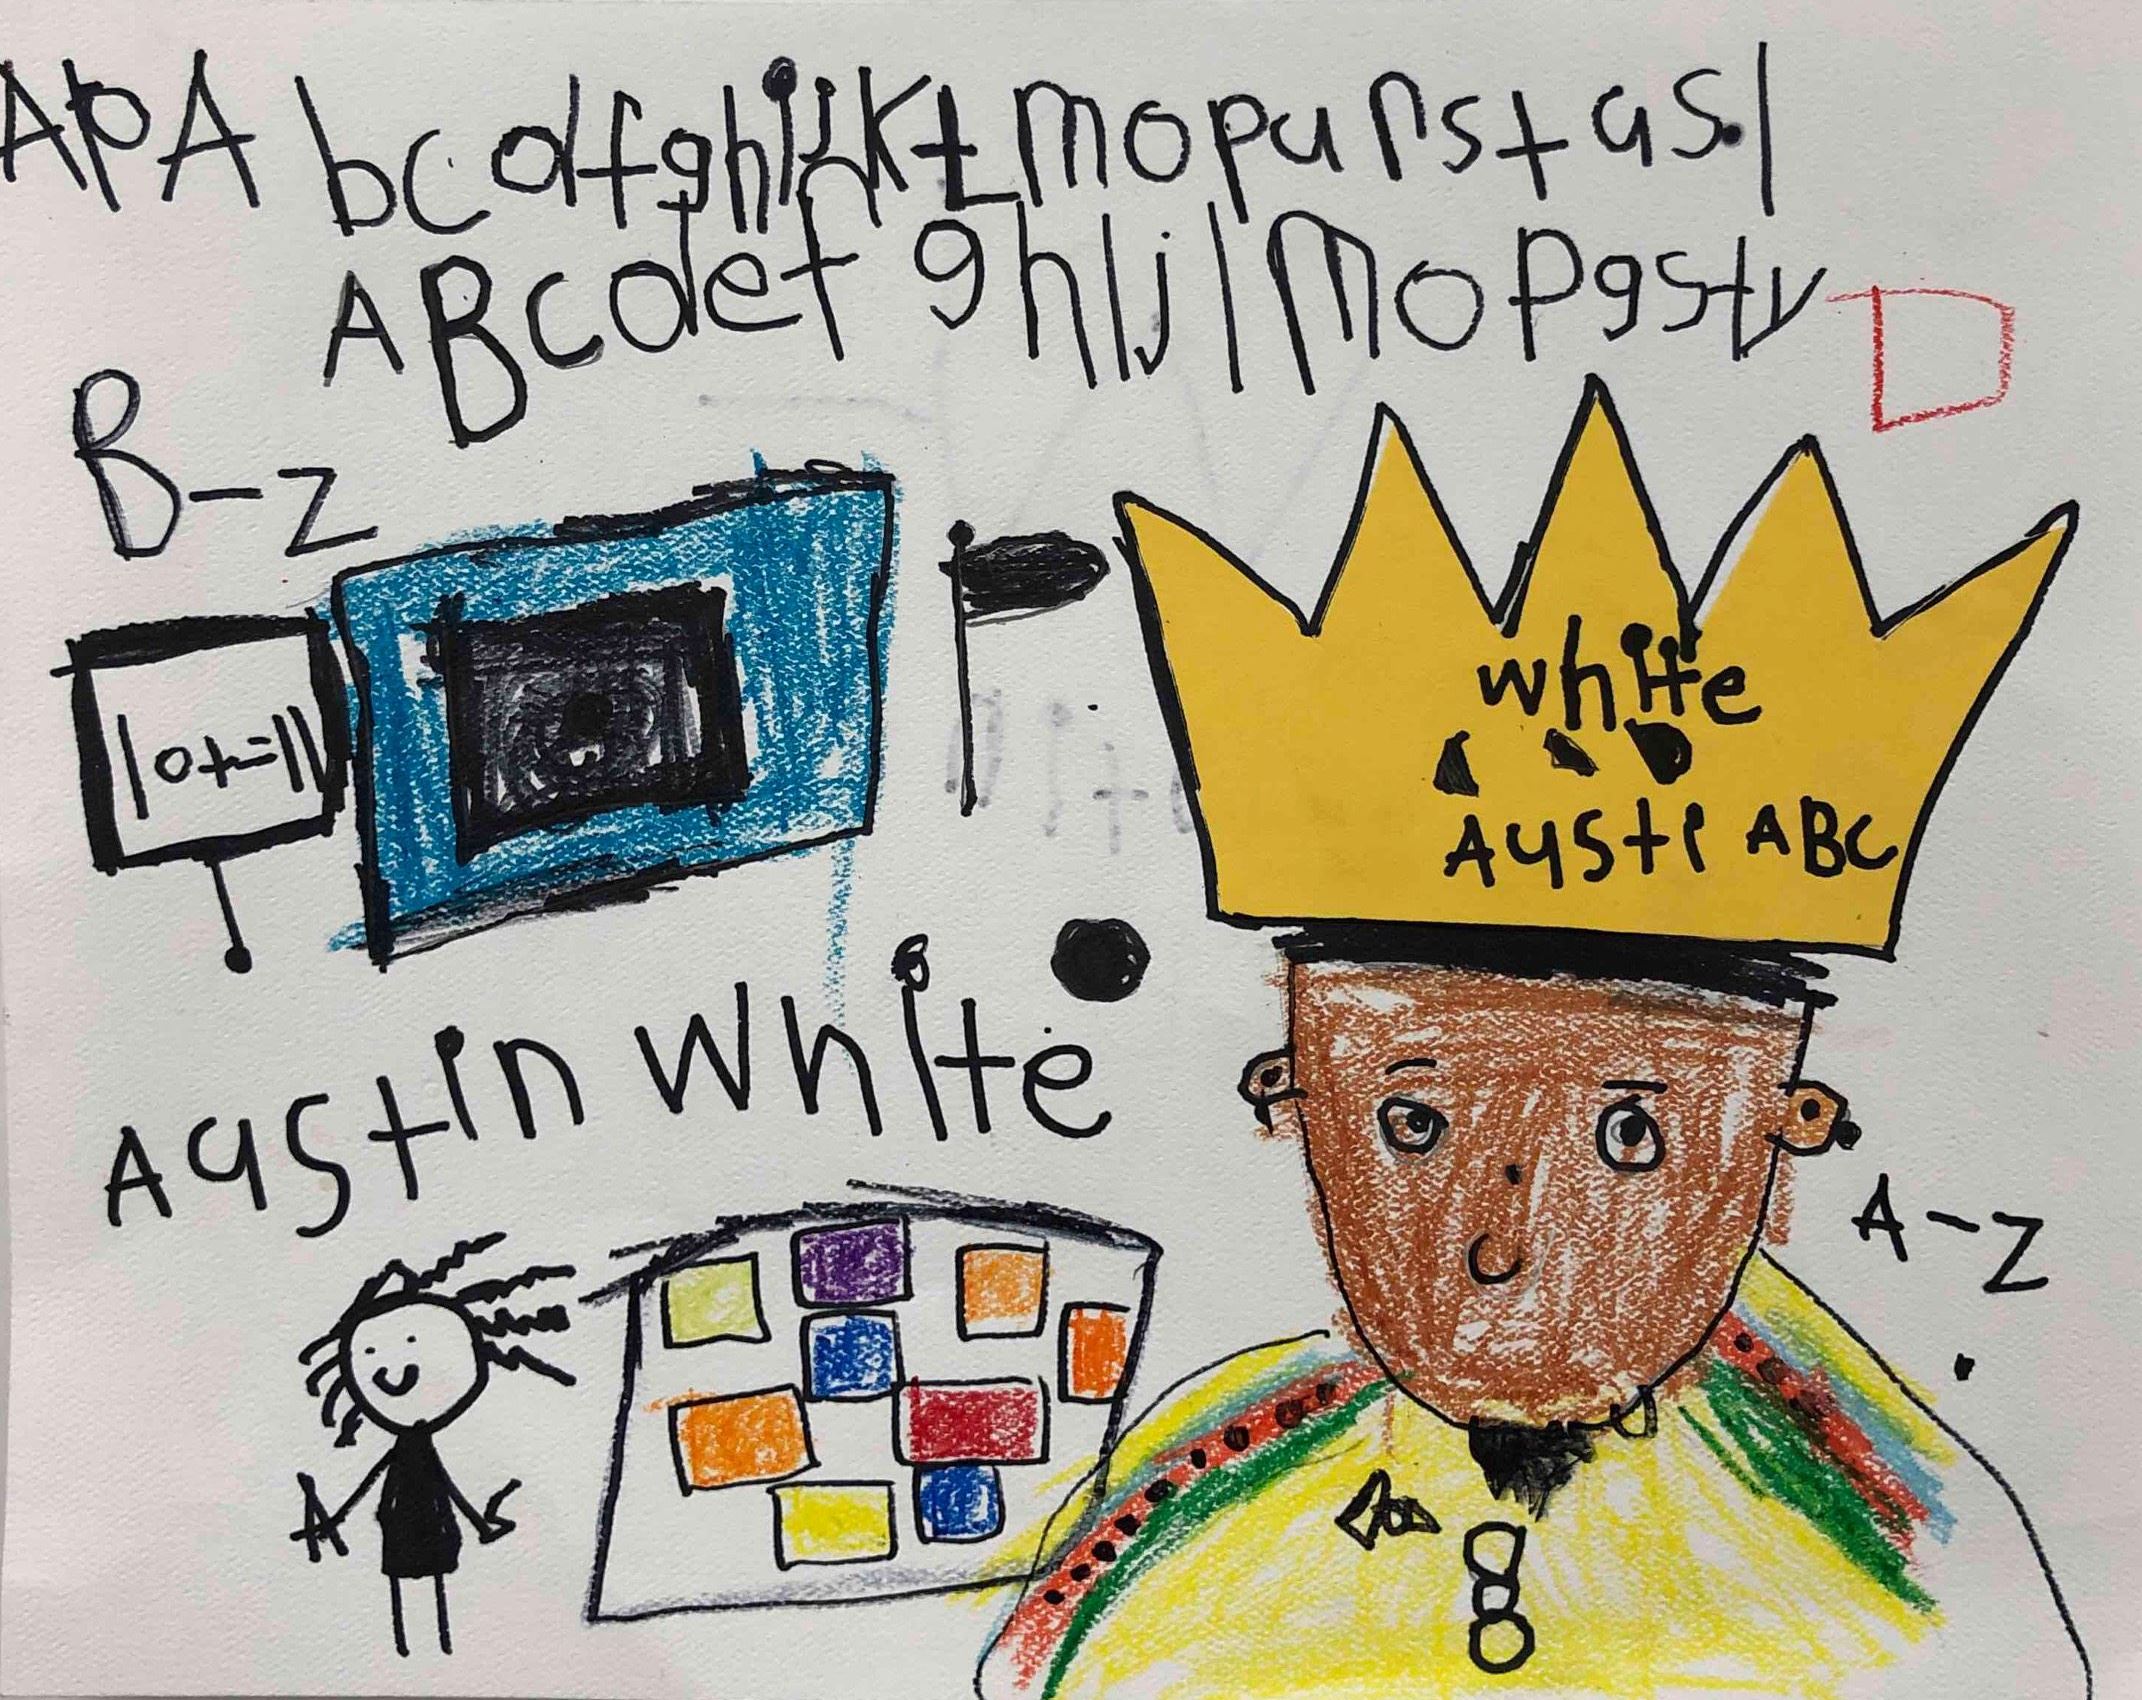 APA bcdfghijktmopurstus.l
ABcdef ghijlmopgstv
D
B-Z
10+=11
white
Austi ABC
Austin white
A-Z